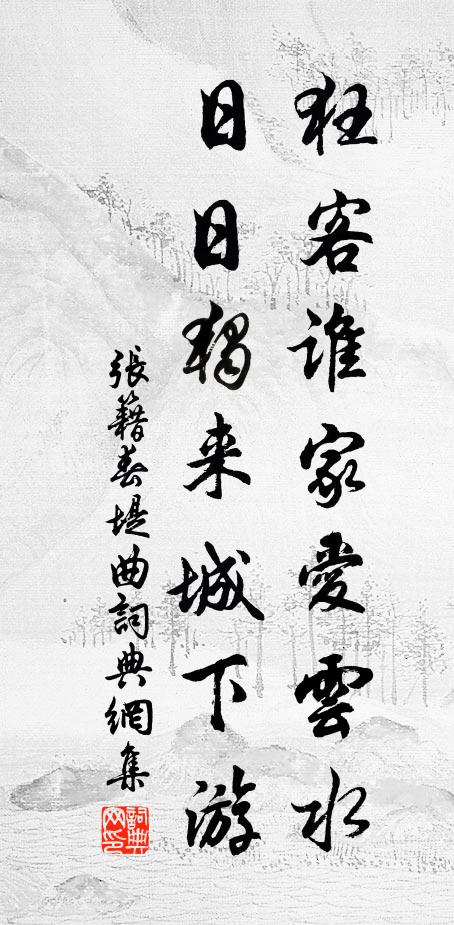 狂客谁家愛雲水
日日獨来城下游
張籍春堤曲詞典網集
詞典
网印